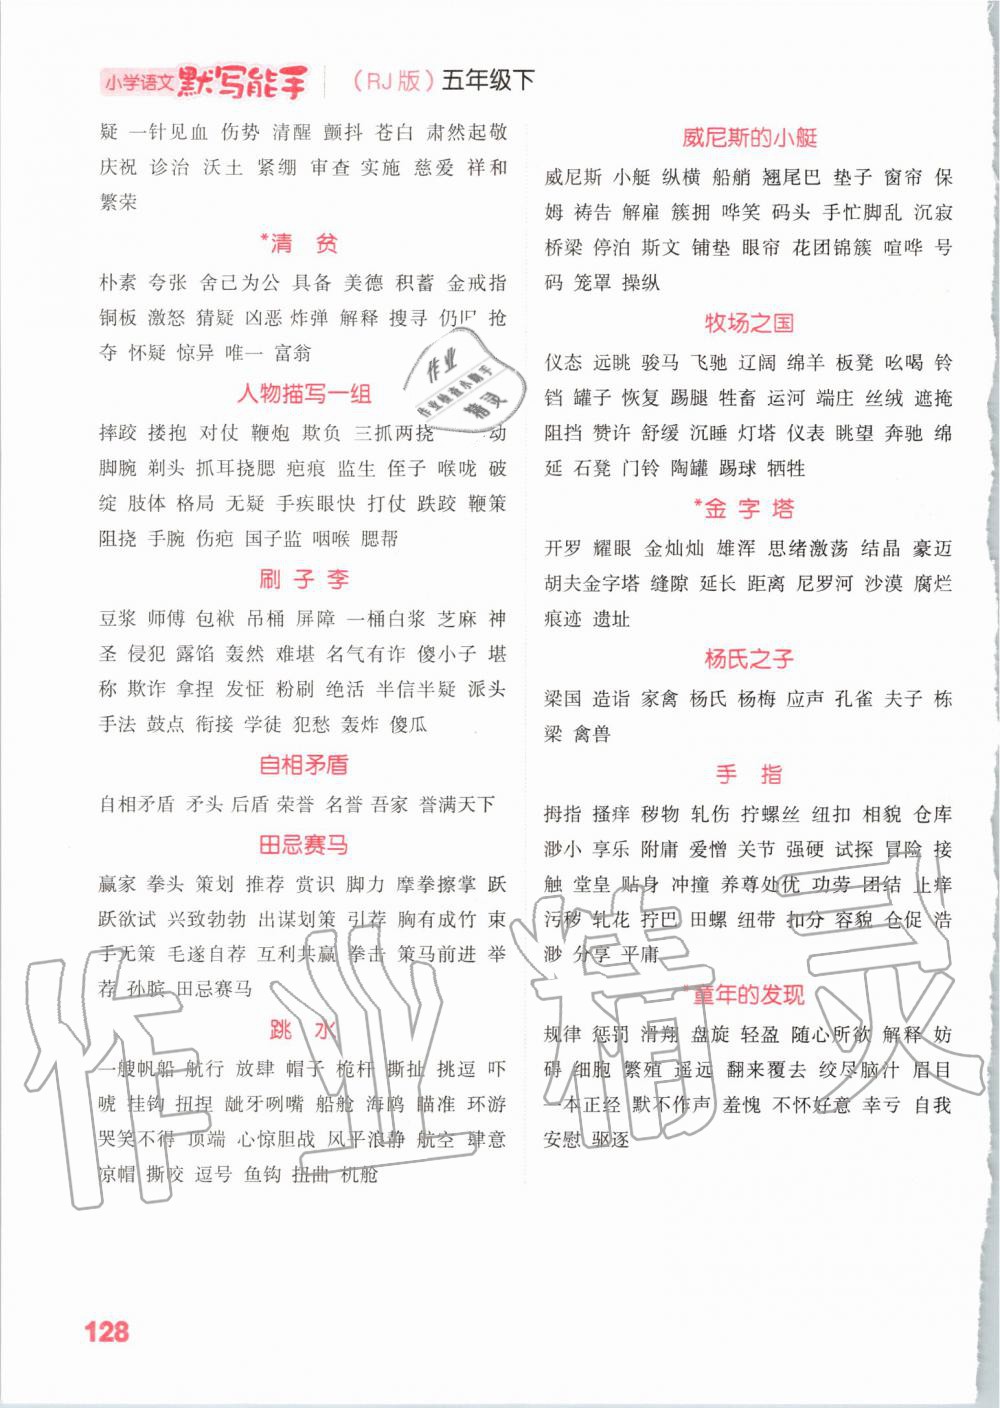 小学语文 默写能手 （RJ版）五年级下
疑 一针见血 伤势 清醒 颤抖 苍白 肃然起敬
庆祝 诊治 沃土 紧绷 审查 实施 慈爱 祥和
繁荣
*清 贫
朴素 夸张 舍己为公 具备 美德 积蓄 金戒指
铜板 激怒 猜疑 凶恶 炸弹 解释 搜寻 仍旧 抢
夺 怀疑 惊异 唯一 富翁
人物描写一组
摔跤 搂抱 对仗 鞭炮 欺负 三抓两挠 动
脚腕 剃头 抓耳挠腮 疤痕 监生 侄子 喉咙 破
绽 肢体 格局 无疑 手疾眼快 打仗 跌跤 鞭策
阻挠 手腕 伤疤 国子监 咽喉 腮帮
刷 子 李
豆浆 师傅 包袱 吊桶 屏障 一桶白浆 芝麻 神
圣 侵犯 露馅 轰然 难堪 名气有诈 傻小子 堪
称 欺诈 拿捏 发怔 粉刷 绝活 半信半疑 派头
手法 鼓点 衔接 学徒 犯愁 轰炸 傻瓜
自相矛盾
自相矛盾 矛头 后盾 荣誉 名誉 吾家 誉满天下
田忌赛马
赢家 拳头 策划 推荐 赏识 脚力 摩拳擦掌 跃
跃欲试 兴致勃勃 出谋划策 引荐 胸有成竹 束
手无策 毛遂自荐 互利共赢 拳击 策马前进 举
荐 孙膑 田忌赛马
跳 水
一艘帆船 航行 放肆 帽子 桅杆 撕扯 挑逗 吓
唬 挂钩 扭捏 龇牙咧嘴 船舱 海鸥 瞄准 环游
哭笑不得 顶端 心惊胆战 风平浪静 航空 肆意
凉帽 撕咬 逗号 鱼钩 扭曲 机舱
128
威尼斯的小艇
威尼斯 小艇 纵横 船艄 翘尾巴 垫子 窗帘 保
姆 祷告 解雇 簇拥 哗笑 码头 手忙脚乱 沉寂
桥梁 停泊 斯文 铺垫 眼帘 花团锦簇 喧哗 号
码 笼罩 操纵
牧场之国
仪态 远眺 骏马 飞驰 辽阔 绵羊 板凳 吆喝 铃
铛 罐子 恢复 踢腿 牲畜 运河 端庄 丝绒 遮掩
阻挡 赞许 舒缓 沉睡 灯塔 仪表 眺望 奔驰 绵
延 石凳 门铃 陶罐 踢球 牺牲
*金 字 塔
开罗 耀眼 金灿灿 雄浑 思绪激荡 结晶 豪迈
胡夫金字塔 缝隙 延长 距离 尼罗河 沙漠 腐烂
痕迹 遗址
杨氏之子
梁国 造诣 家禽 杨氏 杨梅 应声 孔雀 夫子 栋
梁 禽兽
手 指
拇指 搔痒 秽物 轧伤 拧螺丝 纽扣 相貌 仓库
渺小 享乐 附庸 爱憎 关节 强硬 试探 冒险 接
触 堂皇 贴身 冲撞 养尊处优 功劳 团结 止痒
污秽 轧花 拧巴 田螺 纽带 扣分 容貌 仓促 浩
渺 分享 平庸
*童年的发现
规律 惩罚 滑翔 盘旋 轻盈 随心所欲 解释 妨
碍 细胞 繁殖 遥远 翻来覆去 绞尽脑汁 眉目
一本正经 默不作声 羞愧 不怀好意 幸亏 自我
安慰 驱逐
作业
作业检查小助手
精灵
作业精灵